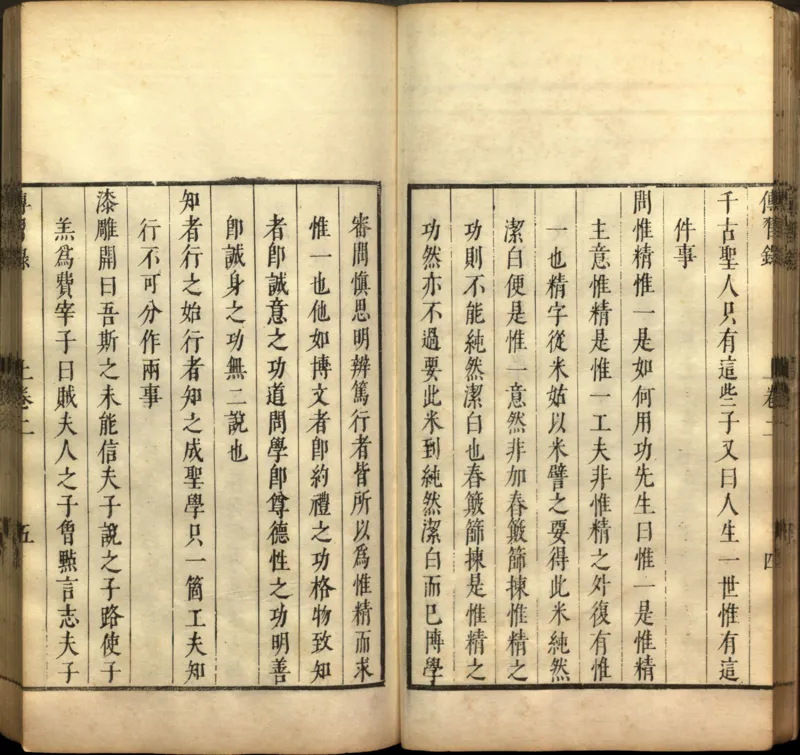 傳習錄
上卷二
四
千古聖人只有這些子又曰人生一世惟有這
件事
問惟精惟一是如何用功先生曰惟一是惟精
主意惟精是惟一工夫非惟精之外復有惟
一也精字從米姑以米譬之要得此米純然
潔白便是惟一意然非加舂簸篩揀惟精之
功則不能純然潔白也舂簸篩揀是惟精之
功然亦不過要此米到純然潔白而已博學
審問慎思明辨篤行者皆所以爲惟精而求
惟一也他如博文者卽約禮之功格物致知
者卽誠意之功道問學卽尊德性之功明善
卽誠身之功無二說也
知者行之始行者知之成聖學只一箇工夫知
行不可分作兩事
漆雕開曰吾斯之未能信夫子說之子路使子
羔爲費宰子曰賊夫人之子曾點言志夫子
傳習錄
上卷二
五